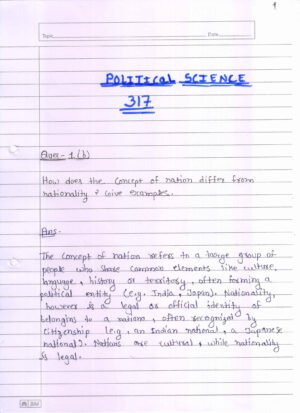 1
Topic
Date
POLITICAL SCIENCE
317
Ques- 1. (b)
How does the concept of nation differ from
nationality? Give examples.
Ans-
The concept of nation refers to a large group of
people who share common elements like culture,
language, history or territory, often forming a
political entity (e.g. India, Japan). Nationality,
however is a legal or official identity of
belonging to a nation, often recognized by
citizenship (e.g. an Indian national, a Japanese
national). Nations are cultural, while nationality
is legal.